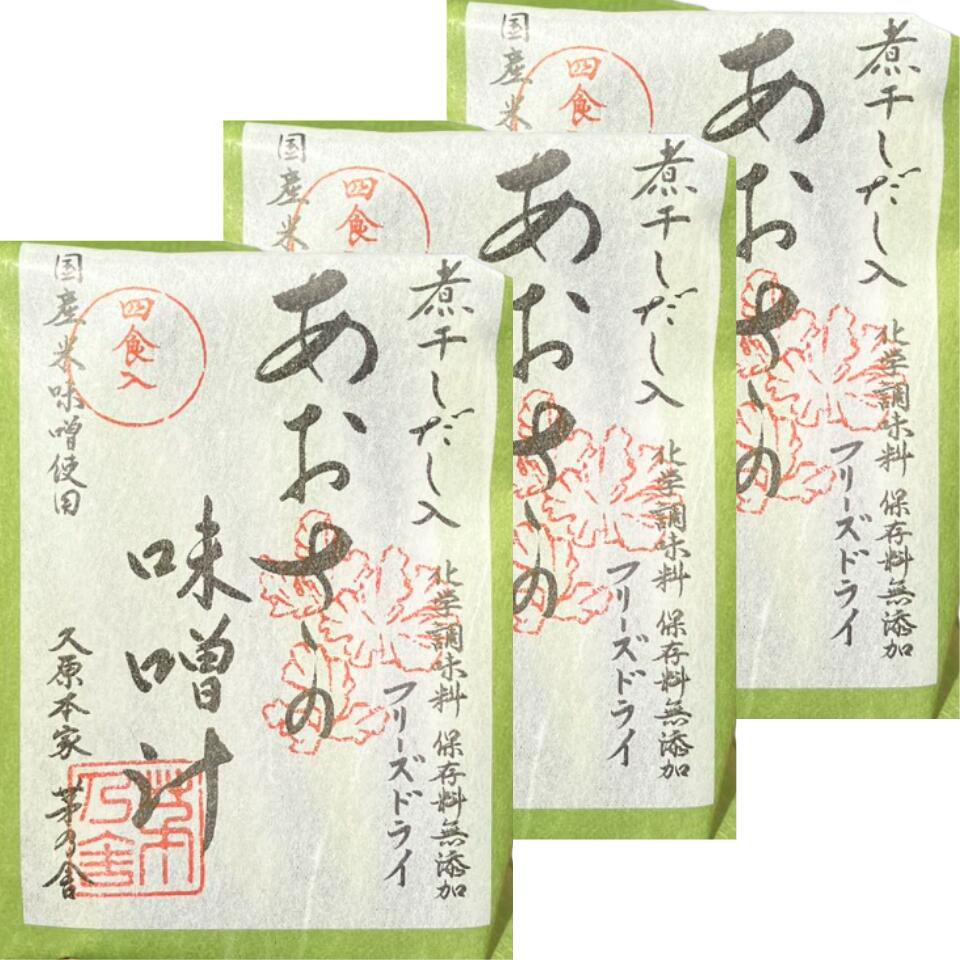 煮干しだし入
あおさの
味噌汁
化学調味料 保存料無添加
フリーズドライ
四食入
国産米味噌使用
久原本家 茅乃舎
茅乃舎
煮干しだし入
あおさの
化学調味料 保存料無添加
フリーズドライ
四食
国産米
煮干しだし入
あおさの
化学調味料 保存料無添加
フリーズドライ
四食
国産米